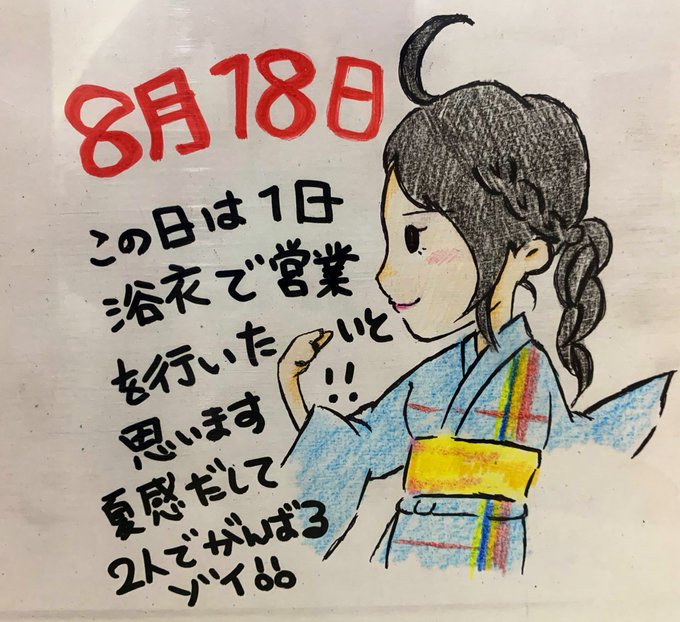 8月18日
この日は1日
浴衣で営業
を行いたいと
思います!!
夏感だして
2人でがんばる
ゾイ!!